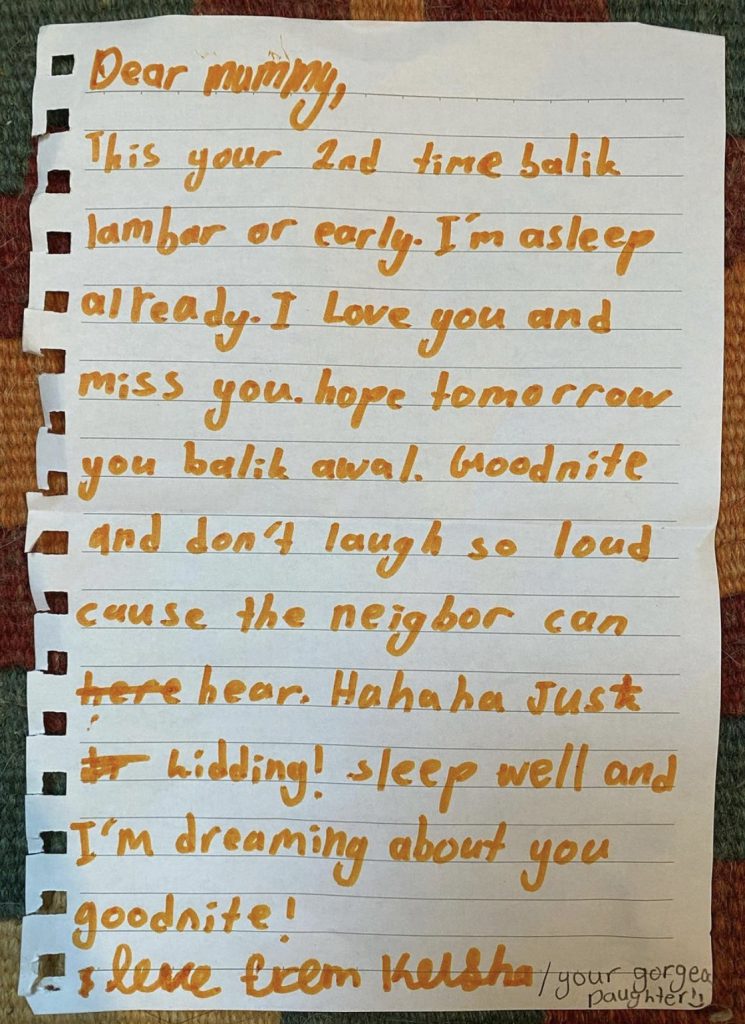 Dear mummy,
This your 2nd time balik
lambar or early. I'm asleep
already. I Love you and
miss you. hope tomorrow
you balik awal. Goodnite
and don't laugh so loud
cause the neigbor can
here hear. Hahaha Just
kidding! sleep well and
I'm dreaming about you
goodnite!
love from Keisha / your gorgea
Daughter :)